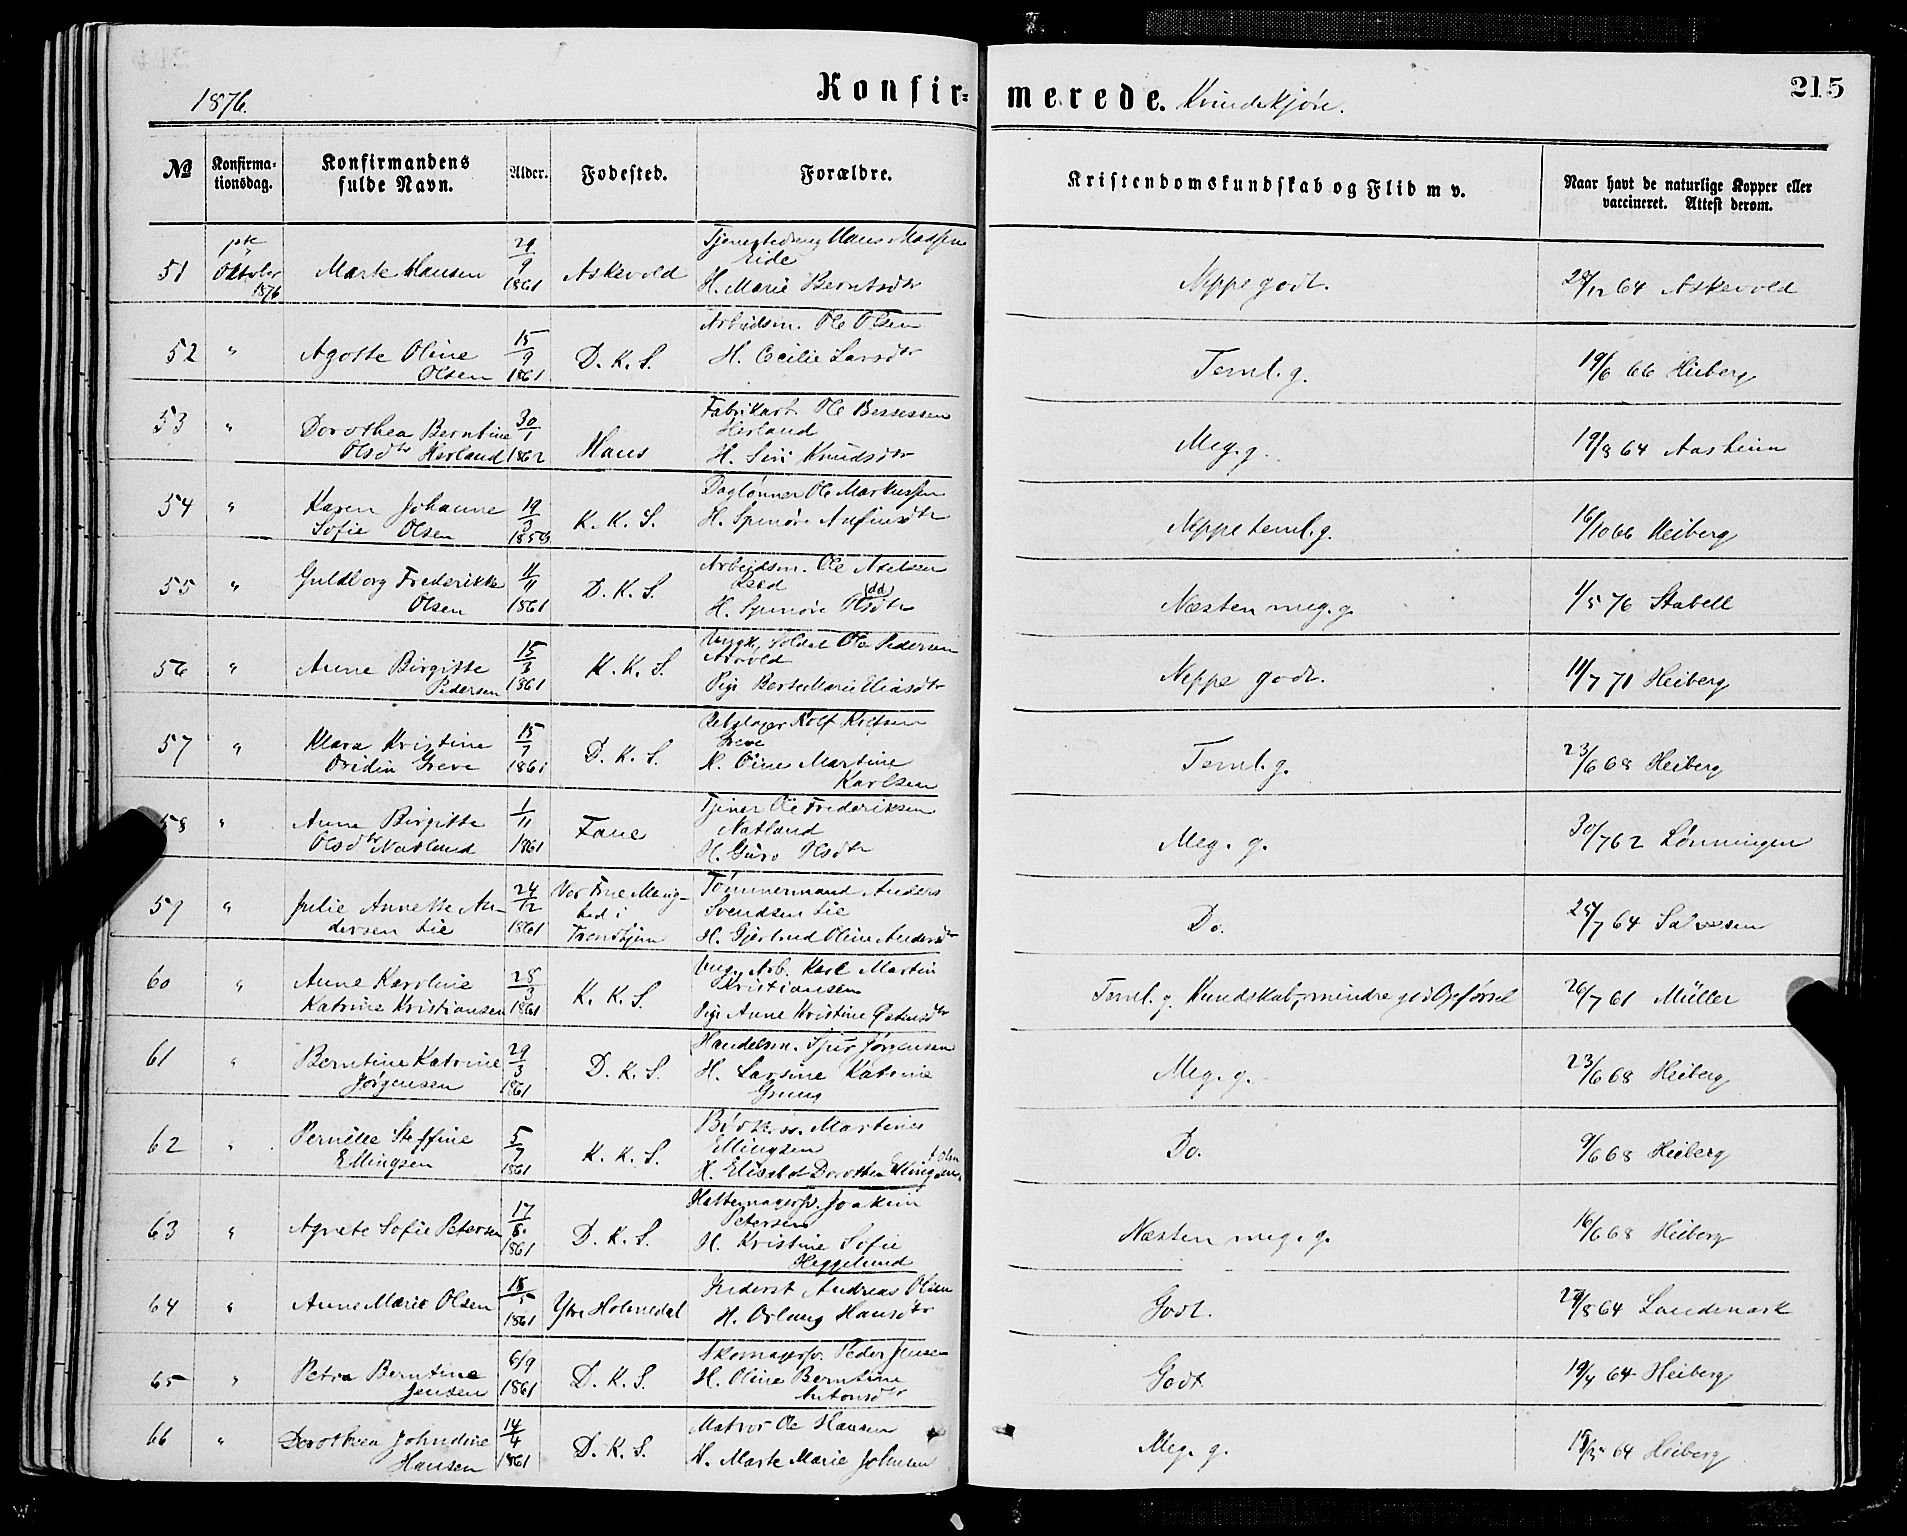 215
1876.
Konfir=
merede. Kvindekjøn.
№
Konfirma-
tionsdag.
Konfirmandens
fulde Navn.
Alder.
Fødested.
Forældre.
Kristendomskundskab og Flid m v.
Naar havt de naturlige Kopper eller
vaccineret. Attest derom.
51
Oktober
1876
Marte Hansen
29/9 1861
Askevold
Hans Madsen
Eide
H. Marie Berntsdtr
Neppe godt.
28/12 64 Askevold
52
"
Agotte Oline
Olsen
15/9 1861
D. K. S.
Arbeidsm. Ole Olsen
H. Cecilie Larsdtr
Teml. g.
19/6 66 Heiberg
53
"
Dorothea Berntine
Olsdtr Herland
30/1 1862
Haus
Fabrikarb. Ole Bessesen
Herland
H. Siri Knudsdtr
Meg. g.
19/8 64 Aasheim
54
"
Karen Johanne
Sofie Olsen
19/3
K. K. S.
Daglønner Ole Markussen
H. Synnøve Anfinsdtr
Neppe teml. g.
16/10 66 Heiberg
55
"
Guldborg Frederikke
Olsen
11/11 1861
D. K. S.
Arbeidsm. Ole
H. Synnøve Olsdtr (dd)
Næsten meg. g.
1/5 76 Stabell
56
"
Anne Birgitte
Pedersen
15/3 1861
K. K. S.
Ungk. Soldat Ole Pedersen
Pige Berte Marie Eliasdtr
Neppe godt.
11/7 71 Heiberg
57
"
Klara Kristine
Greve
15/7 1861
D. K. S.
Rolf Rolfsen
Greve
H. Oline Martine
Karlsen
Teml. g.
23/6 68 Heiberg
58
"
Anne Birgitte
Olsdtr Natland
1/11 1861
Fane
Tjener Ole Frederiksen
Natland
H. Guro Olsdtr
Meg. g.
30/7 62 Lønningen
59
"
Julie Annette An-
dersen Lie
24/12 1861
Vor Frue Menig-
hed i
Trondhjem
Tømmermand Anders
Svendsen Lie
H. Gjertrud Oline Andersdtr
Do.
25/7 64
60
"
Anne Karoline
Katrine Kristiansen
28/3 1861
K. K. S.
Ung. Arb. Karl Martin
Kristiansen
Pige Anne Kristine
Teml. g. Kundskab, mindre god Opførsel
26/7 61 Müller
61
"
Berntine Katrine
Jørgensen
29/3 1861
D. K. S.
Handelsm. Jørgensen
H. Larsine Katrine
Grung
Meg. g.
23/6 68 Heiberg
62
"
Pernille Steffine
Ellingsen
5/7 1861
K. K. S.
Bødkersv. Martinus
Ellingsen
H. Elisabet Dorothea Ellingsen
Do.
9/6 68 Heiberg
63
"
Agnete Sofie Petersen
17/8 1861
D. K. S.
Hattemagersv. Joakim
Petersen
H. Kristine Sofie
Heggelund
Næsten meg. g.
16/6 68 Heiberg
64
"
Anne Marie Olsen
18/5 1861
Ytre Holmedal
Inderst Andreas Olsen
H. Hansdtr
Godt.
29/8 64 Landmark
65
"
Petra Berntine
Jensen
6/9 1861
D. K. S.
Skomagersv. Peder Jensen
H. Oline Berntine
Antonsdtr
Godt
19/4 64 Heiberg
66
"
Dorothea Johndine
Hansen
14/4 1861
D. K. S.
Matros Ole Hansen
H. Marte Marie Johnsen
Meg. g.
64 Heiberg